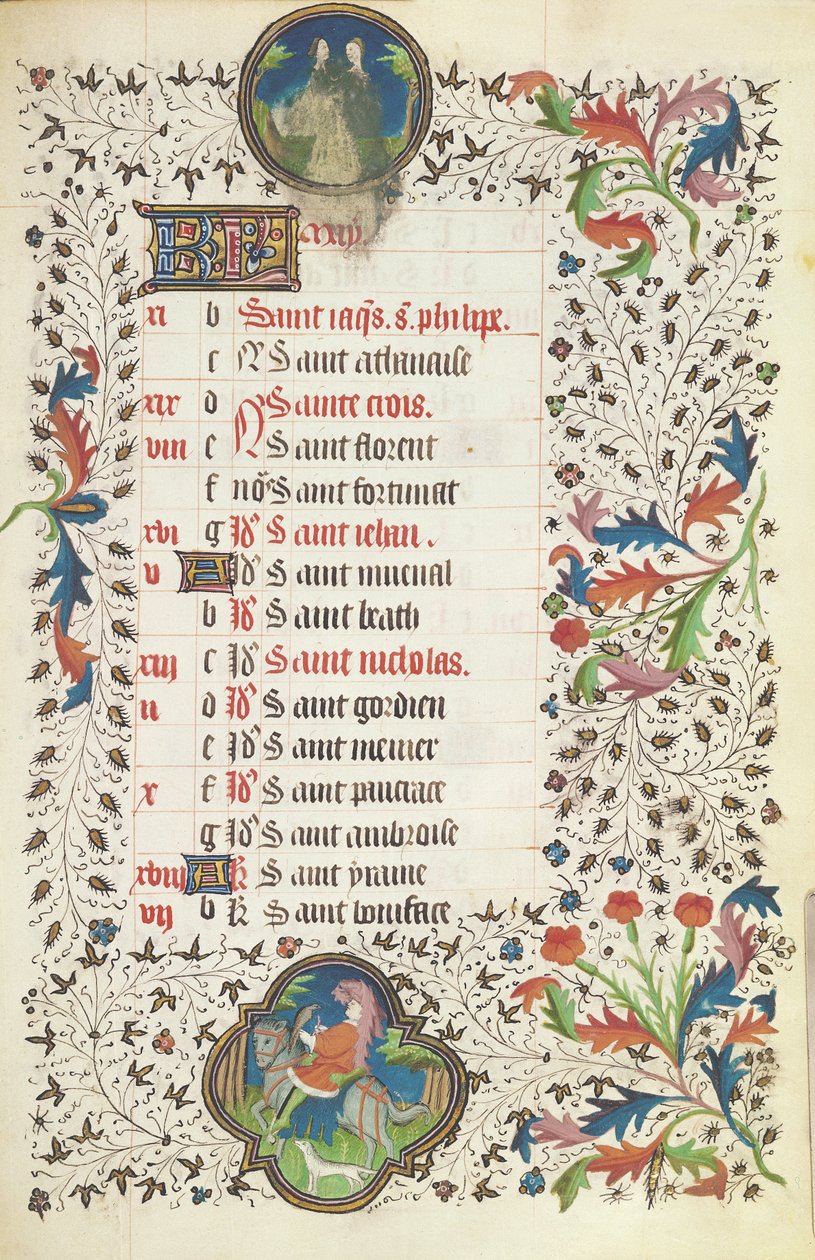 KL May.
xi b Saint iaq̃s. s̃. philipe.
c N Saint athanaise
xix d N Sainte crois.
viii e Saint florent
f no Saint fortunat
xvi g Id Saint iehan.
v A Id Saint
b Id Saint beath
xiii c Id Saint nicholas.
ii d Id Saint gordien
e Id Saint
x f Id Saint pancrace
g Id Saint ambroise
xviii A k Saint yraine
vii b k Saint boniface